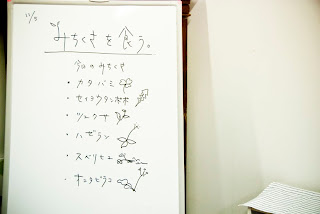 11/3
みちくさを食う。
今日のみちくさ
・カタバミ
・セイヨウタンポポ
・ツユクサ
・ハゼラン
・スベリヒユ
・オニタビラコ